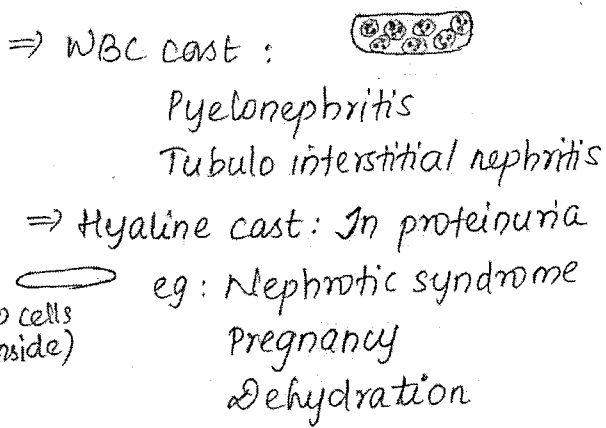 ⇒ WBC cast :
Pyelonephritis
Tubulo interstitial nephritis
⇒ Hyaline cast : In proteinuria
eg : Nephrotic syndrome
cells
Pregnancy
Dehydration